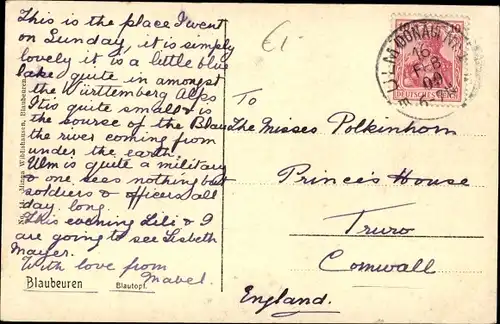 This is the place I went
on Sunday, it is simply
lovely it is a little blue
lake quite in amongst
the Württemberg Alps
Itis quite small & is
the source of the Blau
the river coming from
under the earth.
Ulm is quite a military
& one sees nothing but
soldiers & officers all
day long.
This evening Lili & I
are going to see Lisbeth
Mayer.
With love from
Mabel.
Blaubeuren Blautopf.
Wildishausen, Blaubeuren
To
The Misses Polkinhorn
Prince's House
Truro
Cornwall
England.
ULM DONAU
16
FEB
09
10
DEUTSCHES REICH